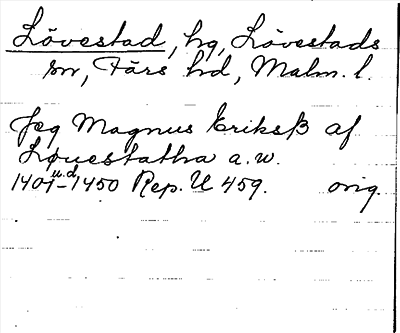 Lövestad, hg, Lövestads
sn, Färs hd, Malm. l.
Jeg Magnus Eriksß af
Løuestatha a.w.
u.d.
1401-1450 Rep. U 459. orig.